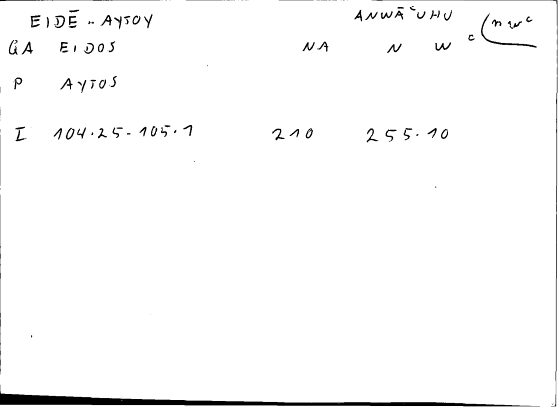 EIDĒ .. AYTOY ANWĀ ͨUHU
GA EIDOS NA N W c(nwc
P AYTOS
I 104.25-105.1 210 255.10